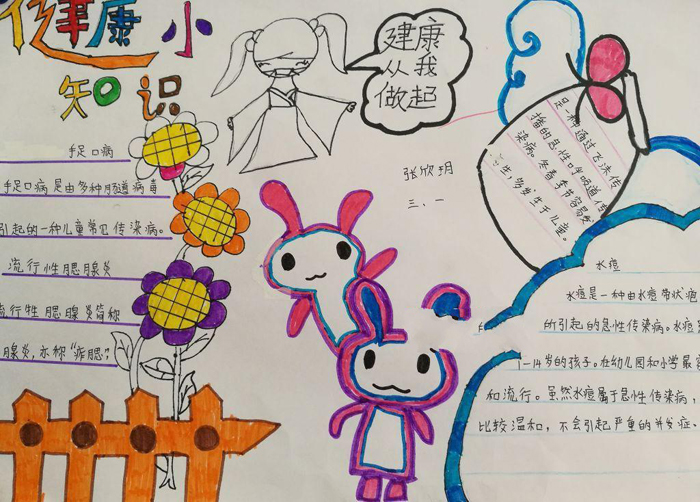 健康小
知识
建康
从我
做起
张欣玥
三、一
手足口病
手足口病是由多种肠道病毒
引起的一种儿童常见传染病。
流行性腮腺炎
流行性腮腺炎简称
腺炎,亦称“痄腮”
是一种通过飞沫传
播的急性呼吸道传
染病。冬春季节容易发
生,多发生于儿童。
水痘
水痘是一种由水痘带状疱
所引起的急性传染病。水痘
1-14岁的孩子。在幼儿园和小学最
和流行。虽然水痘属于急性传染病,
比较温和,不会引起严重的并发症、